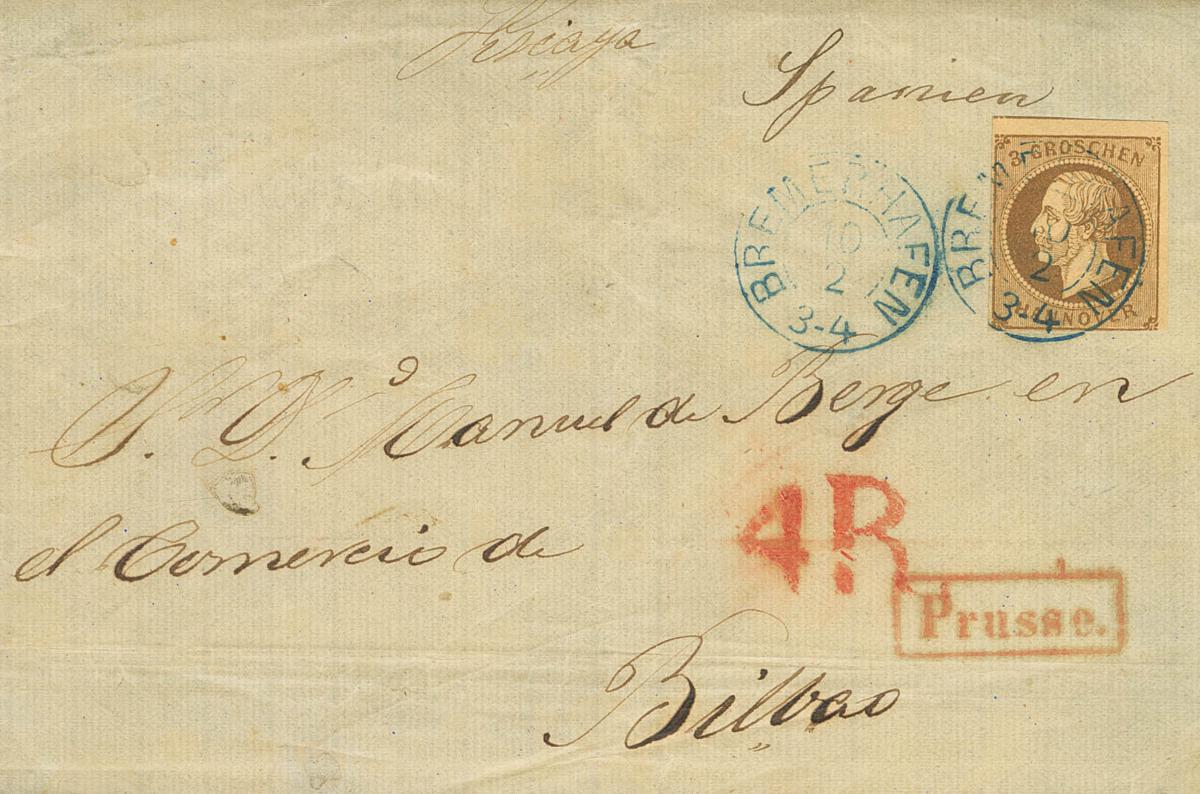 Viscaya
Spanien
3 GROSCHEN
HANNOVER
BREMERHAFEN
10
2
3-4
BREMERHAFEN
10
2
3-4
Sr. D. Manuel de Berge en
el Comercio de
Bilbao
4R.
Prusse.